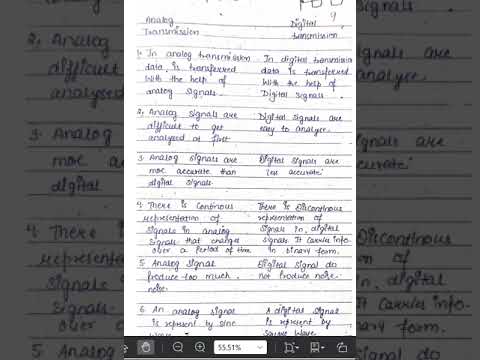 Analog Digital
Transmission transmission
1. In analog transmission In digital transmission
data is transferred data is transferred
With the help of With the help of
analog signals. Digital signals.
2. Analog signals are Digital signals are
difficult to get easy to analyse.
analysed at first
3. Analog signals are Digital signals are
more accurate than less accurate
digital signals.
4. There is continous There is Discontinous
representation of representation of
signals in analog signals in, digital
signals that changes signals It Carries info-
over a period of time in binary form.
5. Analog signal Digital signal do
produce too much not produce noise.
noise.
6. An analog signal A digital signal
is represent by sine is represent by
Square Wave
55.51%
2. Analog
difficult
analysed
3. Analog
digital
4. There is
signals
over a
5. Analog
Discontinous
digital
It Carries info-
form.